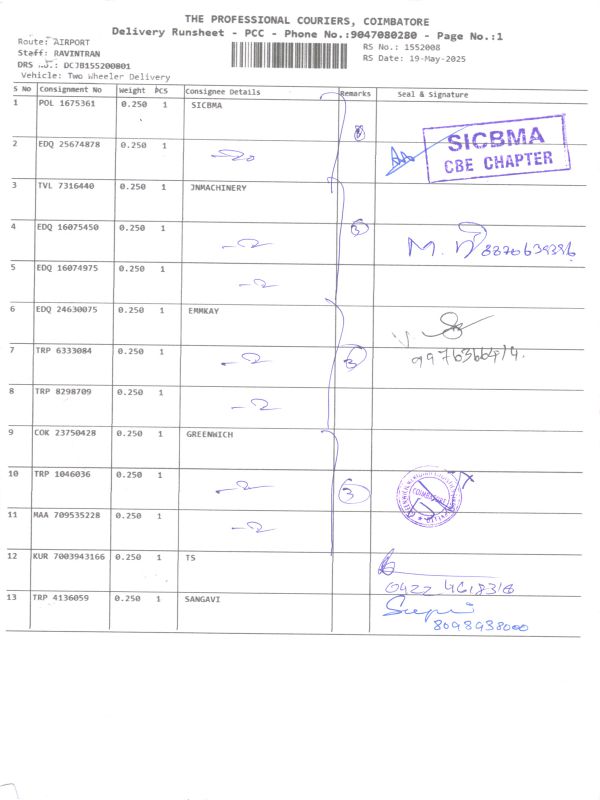 THE PROFESSIONAL COURIERS, COIMBATORE
Delivery Runsheet - PCC - Phone No.:9047080280 - Page No.:1
Route: AIRPORT
Staff: RAVINTRAN
DRS No.: DCJB155200801
Vehicle: Two Wheeler Delivery
RS No.: 1552008
RS Date: 19-May-2025
S No Consignment No Weight PCS Consignee Details Remarks Seal & Signature
1 POL 1675361 0.250 1 SICBMA
2 EDQ 25674878 0.250 1
SICBMA
CBE CHAPTER
3 TVL 7316440 0.250 1 JNMACHINERY
4 EDQ 16075450 0.250 1 3
5 EDQ 16074975 0.250 1
6 EDQ 24630075 0.250 1 EMMKAY
7 TRP 6333084 0.250 1 3
8 TRP 8298709 0.250 1
9 COK 23750428 0.250 1 GREENWICH
10 TRP 1046036 0.250 1 3
COIMBATORE
11 MAA 709535228 0.250 1
12 KUR 7003943166 0.250 1 TS
0422 4618316
13 TRP 4136059 0.250 1 SANGAVI
8098938000